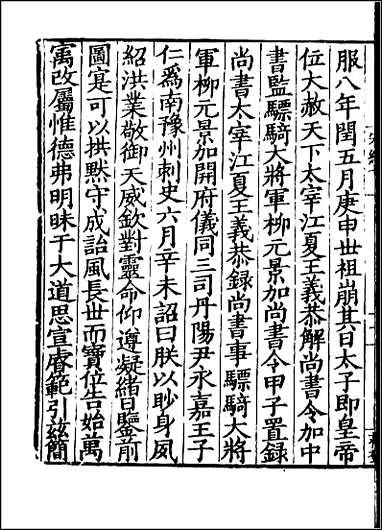 服八年閏五月庚申世祖崩其日太子即皇帝
位大赦天下太宰江夏王義恭解尚書令加中
書監驃騎大將軍柳元景加尚書令甲子置錄
尚書太宰江夏王義恭錄尚書事驃騎大將
軍柳元景加開府儀同三司丹陽尹永嘉王子
仁爲南豫州刺史六月辛未詔曰朕以眇身夙
紹洪業敬御天威欽對靈命仰遵凝緒日鑒前
圖寔可以拱默守成詒風長世而寶位告始萬
寓改屬惟德弗明昧于大道思宣睿範引茲簡